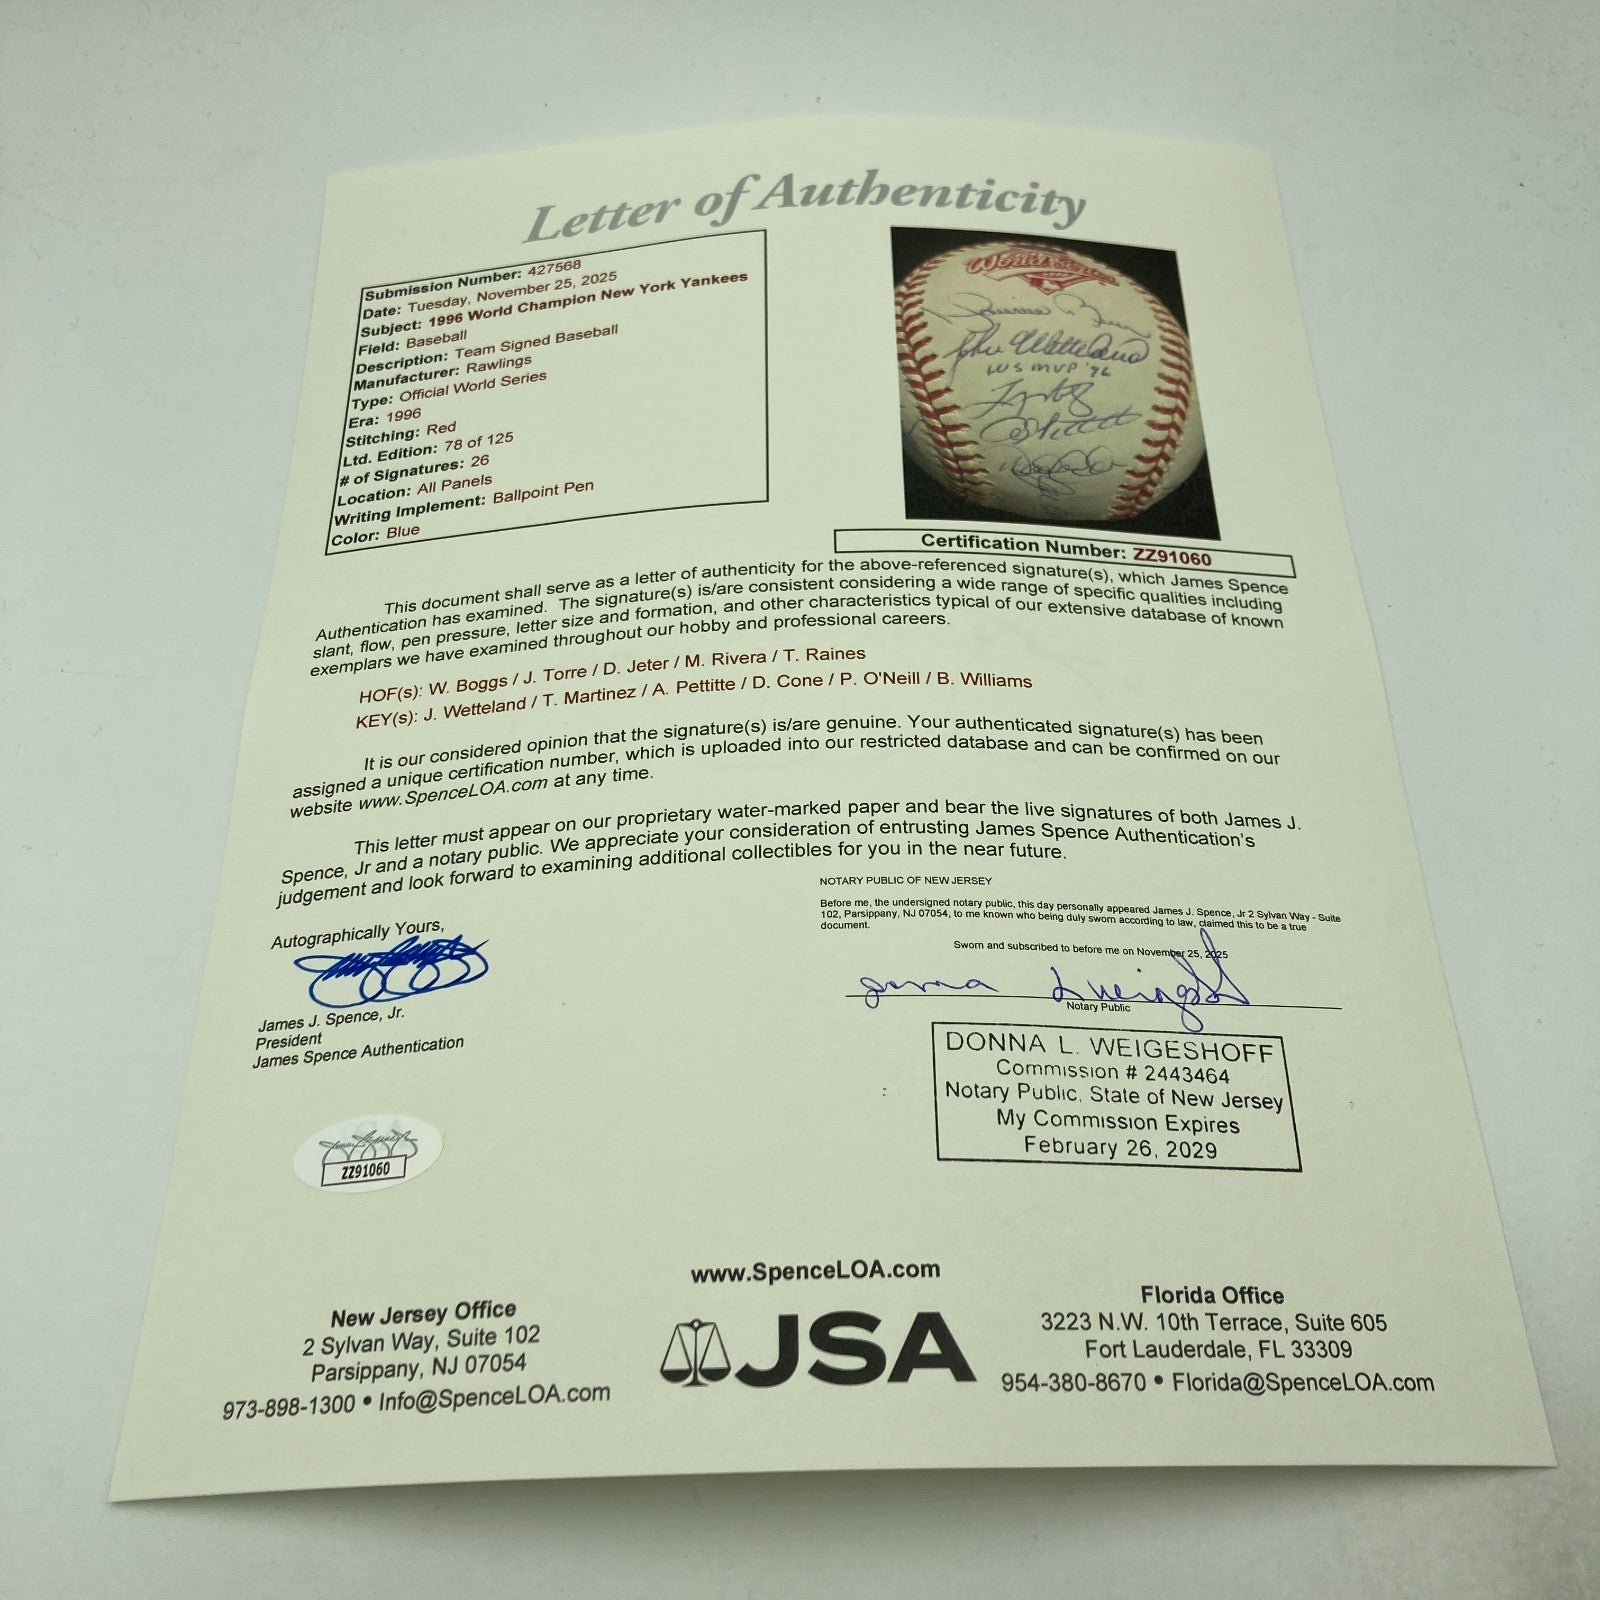 Letter of Authenticity
Submission Number: 427568
Date: Tuesday, November 25, 2025
Subject: 1996 World Champion New York Yankees
Field: Baseball
Description: Team Signed Baseball
Manufacturer: Rawlings
Type: Official World Series
Era: 1996
Stitching: Red
Ltd. Edition: 78 of 125
# of Signatures: 26
Location: All Panels
Writing Implement: Ballpoint Pen
Color: Blue
World Series
John Wetteland
WS MVP '96
Certification Number: ZZ91060
This document shall serve as a letter of authenticity for the above-referenced signature(s), which James Spence
Authentication has examined. The signature(s) is/are consistent considering a wide range of specific qualities including
slant, flow, pen pressure, letter size and formation, and other characteristics typical of our extensive database of known
exemplars we have examined throughout our hobby and professional careers.
HOF(s): W. Boggs / J. Torre / D. Jeter / M. Rivera / T. Raines
KEY(s): J. Wetteland / T. Martinez / A. Pettitte / D. Cone / P. O'Neill / B. Williams
It is our considered opinion that the signature(s) is/are genuine. Your authenticated signature(s) has been
assigned a unique certification number, which is uploaded into our restricted database and can be confirmed on our
website www.SpenceLOA.com at any time.
This letter must appear on our proprietary water-marked paper and bear the live signatures of both James J.
Spence, Jr and a notary public. We appreciate your consideration of entrusting James Spence Authentication's
judgement and look forward to examining additional collectibles for you in the near future.
NOTARY PUBLIC OF NEW JERSEY
Before me, the undersigned notary public, this day personally appeared James J. Spence, Jr 2 Sylvan Way - Suite
102, Parsippany, NJ 07054, to me known who being duly sworn according to law, claimed this to be a true
document.
Sworn and subscribed to before me on November 25, 2025
Notary Public
Autographically Yours,
James J. Spence, Jr.
President
James Spence Authentication
DONNA L. WEIGESHOFF
Commission # 2443464
Notary Public, State of New Jersey
My Commission Expires
February 26, 2029
ZZ91060
www.SpenceLOA.com
New Jersey Office
2 Sylvan Way, Suite 102
Parsippany, NJ 07054
973-898-1300 • Info@SpenceLOA.com
JSA
Florida Office
3223 N.W. 10th Terrace, Suite 605
Fort Lauderdale, FL 33309
954-380-8670 • Florida@SpenceLOA.com